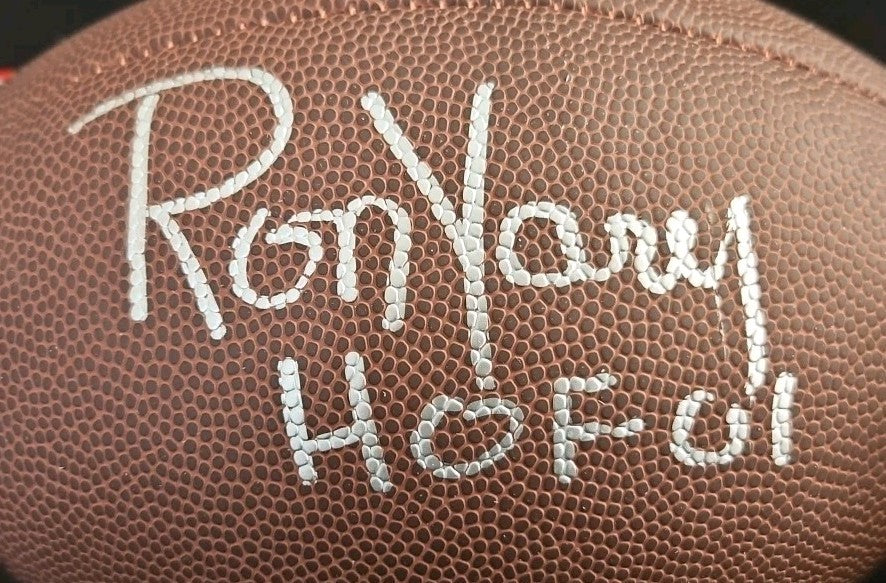 Ron Yary
HOF 01